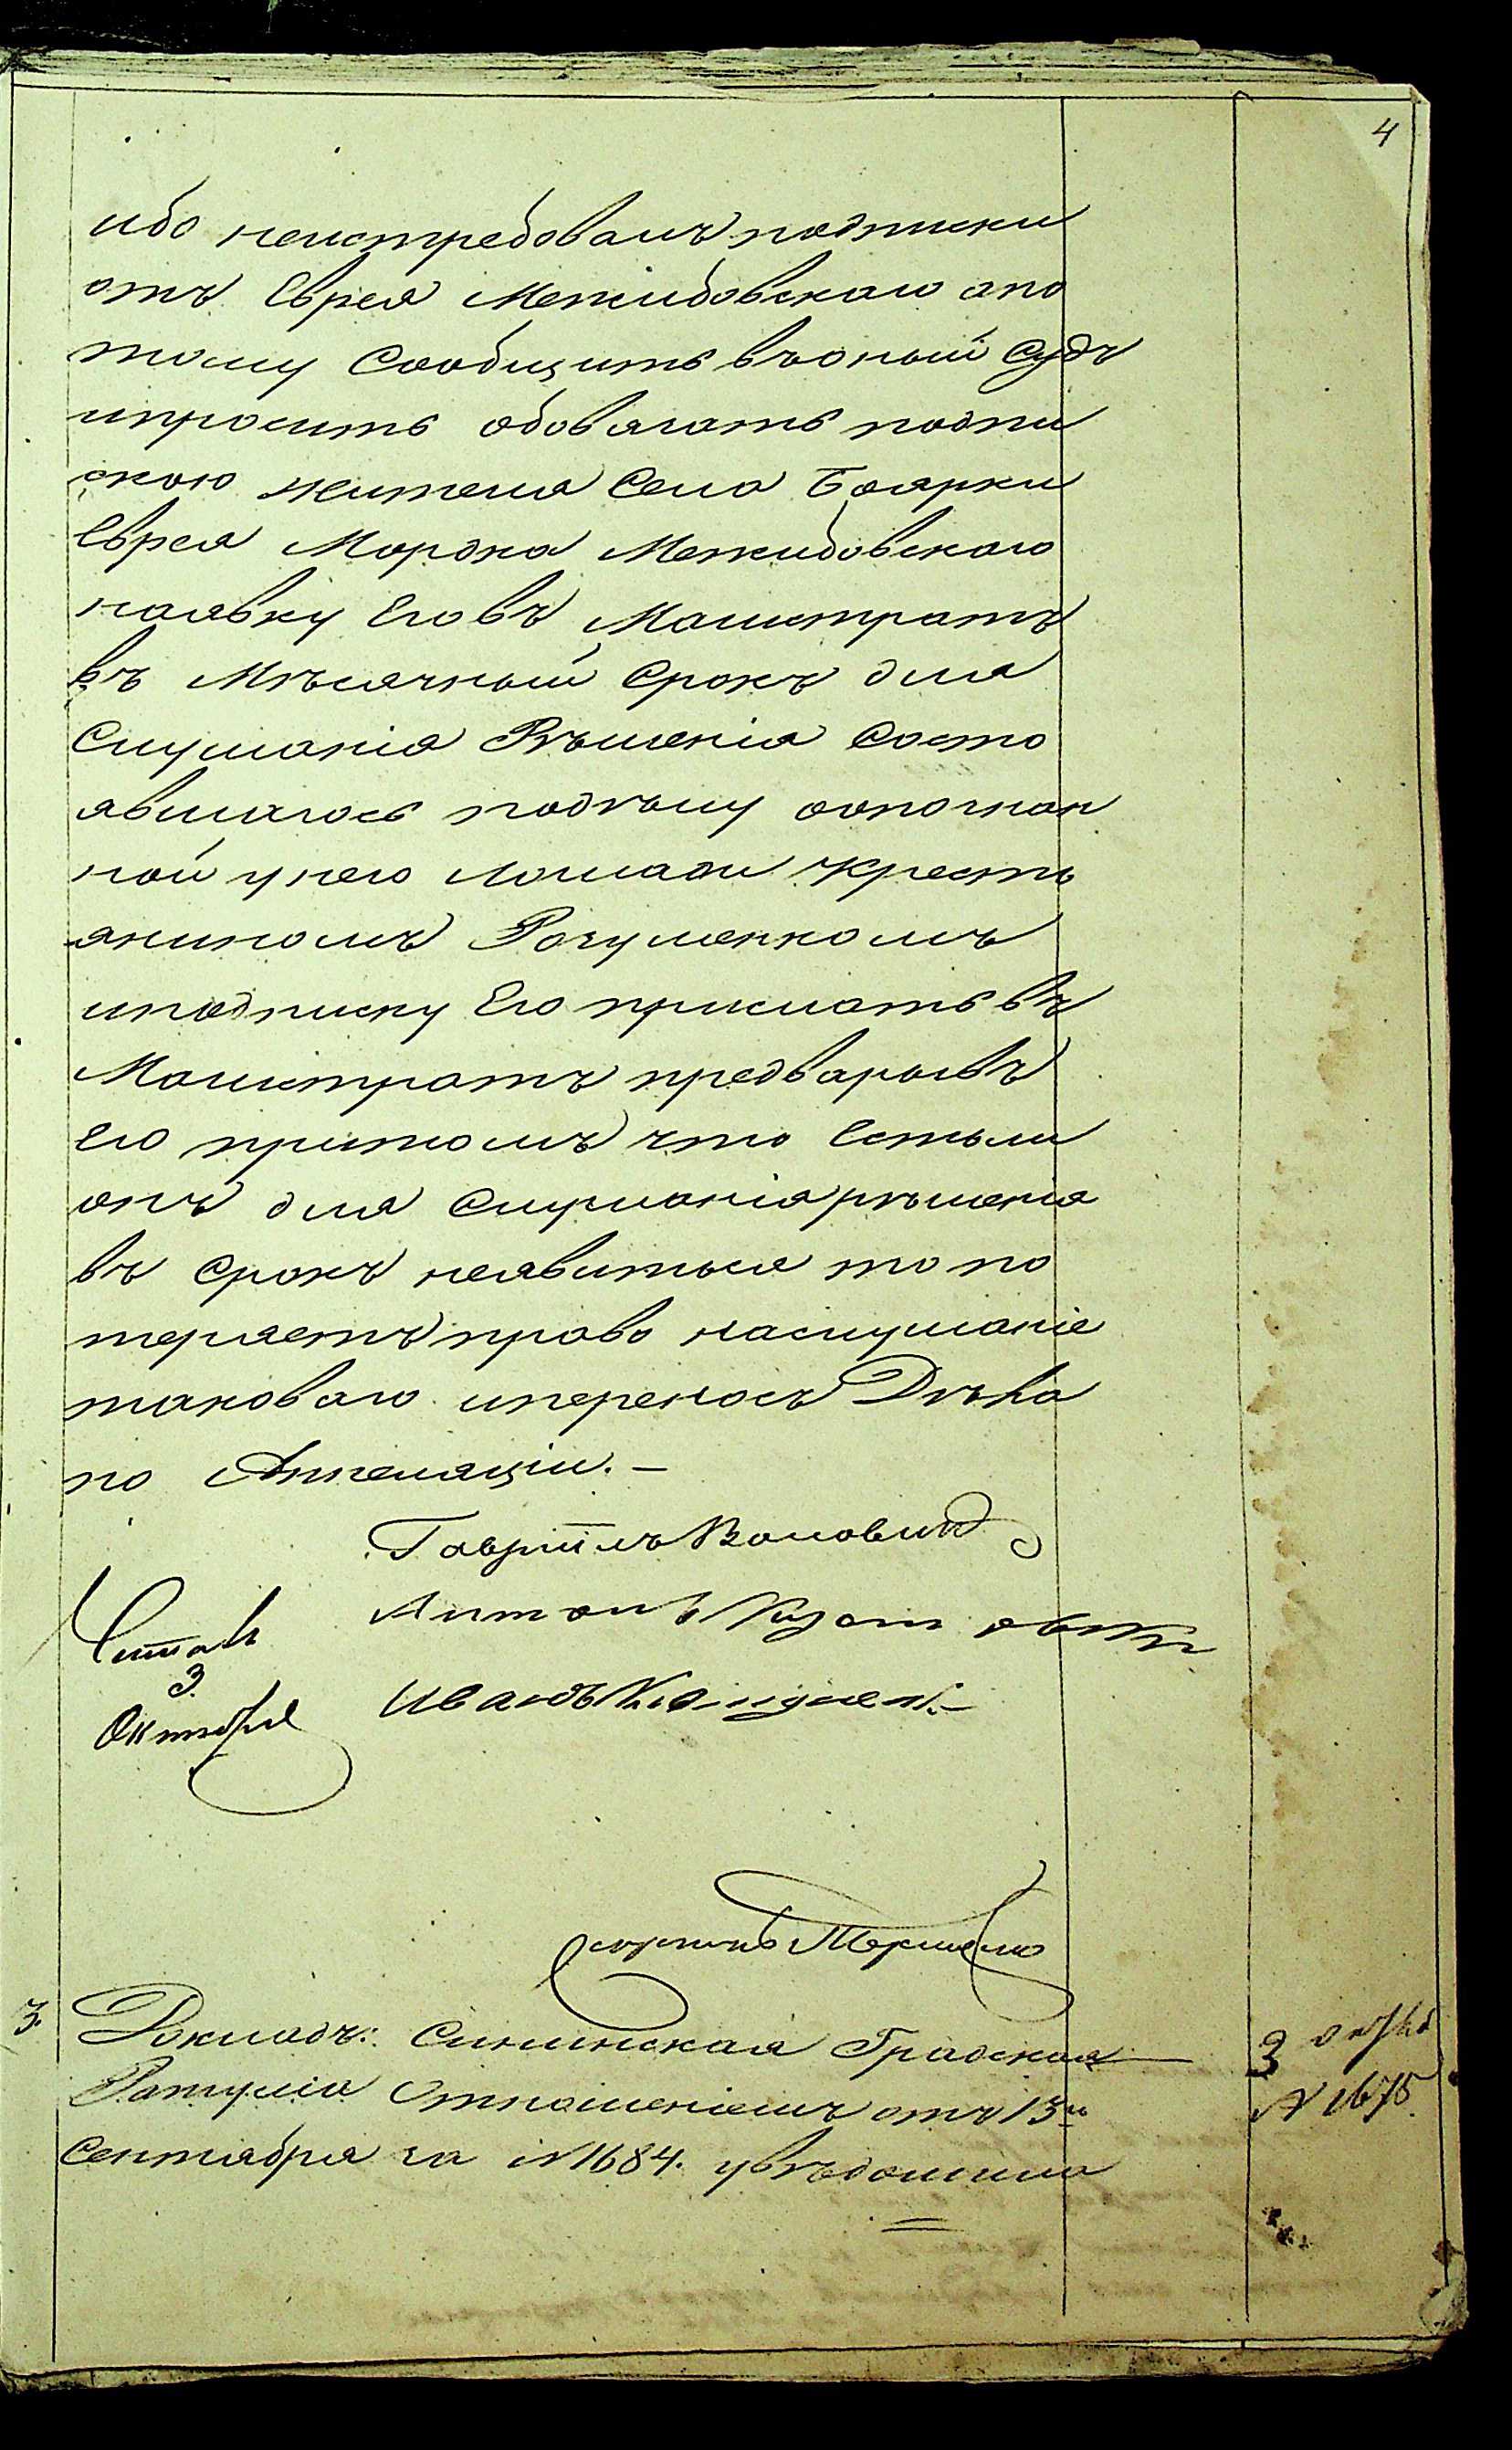 4
ибо неистребовалъ подписки
отъ Еврея Межибовскаго апо
тому Сообщить въоный Судъ
ипросить обовязать подпи
скою жителя Села Боярки
Еврея Мордка Межибовскаго
наявку Его въ Магистратъ
въ Мѣсячный Срокъ для
Слушанія Рѣшенія Состо
явшагось подѣлу оопознан
ной унего лошади Кресть
яниномъ Розуменкомъ
иподписку Его прислать въ
Магистратъ предваривъ
Его притомъ что Естьли
онъ для Слушанія рѣшенія
въ Срокъ неявиться то по
теряетъ право наслушаніе
таковаго ипереносъ Дѣла
по Аппеляціи. —
Гавріилъ
Антонъ
Читалъ
3.
Октября
Иванъ
3. Докладъ: Сичинская Градская
Ратуша Отношеніемъ отъ 13го
Сентября за №1684. увѣдомила
3 октяб
№ 1675.